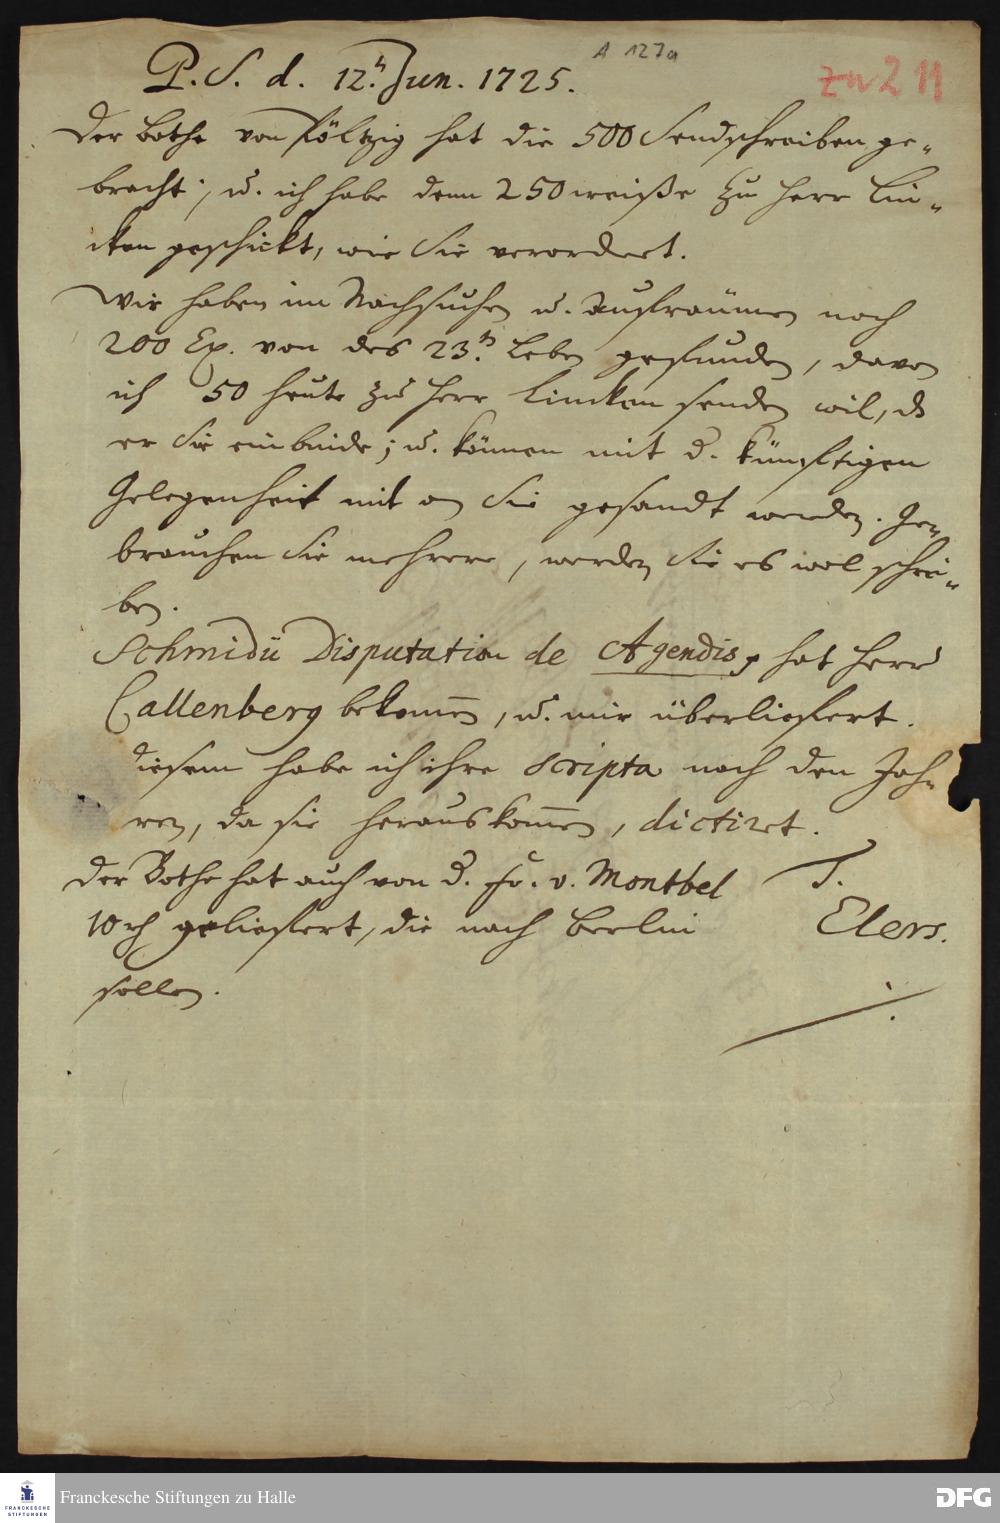 A 127a
zu 211
P. S. d. 12.ᵗ Jun. 1725.
Der Bothe von Pöltzig hat die 500 Sendschreiben ge-
bracht; u. ich habe denn 250 weiße zu Herr Lin-
cken geschickt, wie Sie verordnet.
Wir haben im Nachsuchen u. Aufräumen noch
200 Ex. von des 23.ᵗ Leben gefunden, davon
ich 50 heute zu Herr Lincken senden wil, dß
er Sie einbinde; u. können mit d. künftigen
Gelegenheit mit an Sie gesandt werden. Ge-
brauchen Sie mehrere, werden Sie es wol schrei-
ben.
Schmidii Disputation de Agendis, hat Herr
Callenberg bekomen, u. mir überliefert.
diesem habe ich ihre Scripta nach den Jah-
ren, da sie herauskomen, dictiret.
Der Bothe hat auch von d. Fr. v. Montbel
10 rh geliefert, die nach Berlin
sollen.
T.
Elers.
Franckesche Stiftungen zu Halle
FRANCKESCHE
STIFTUNGEN
DFG